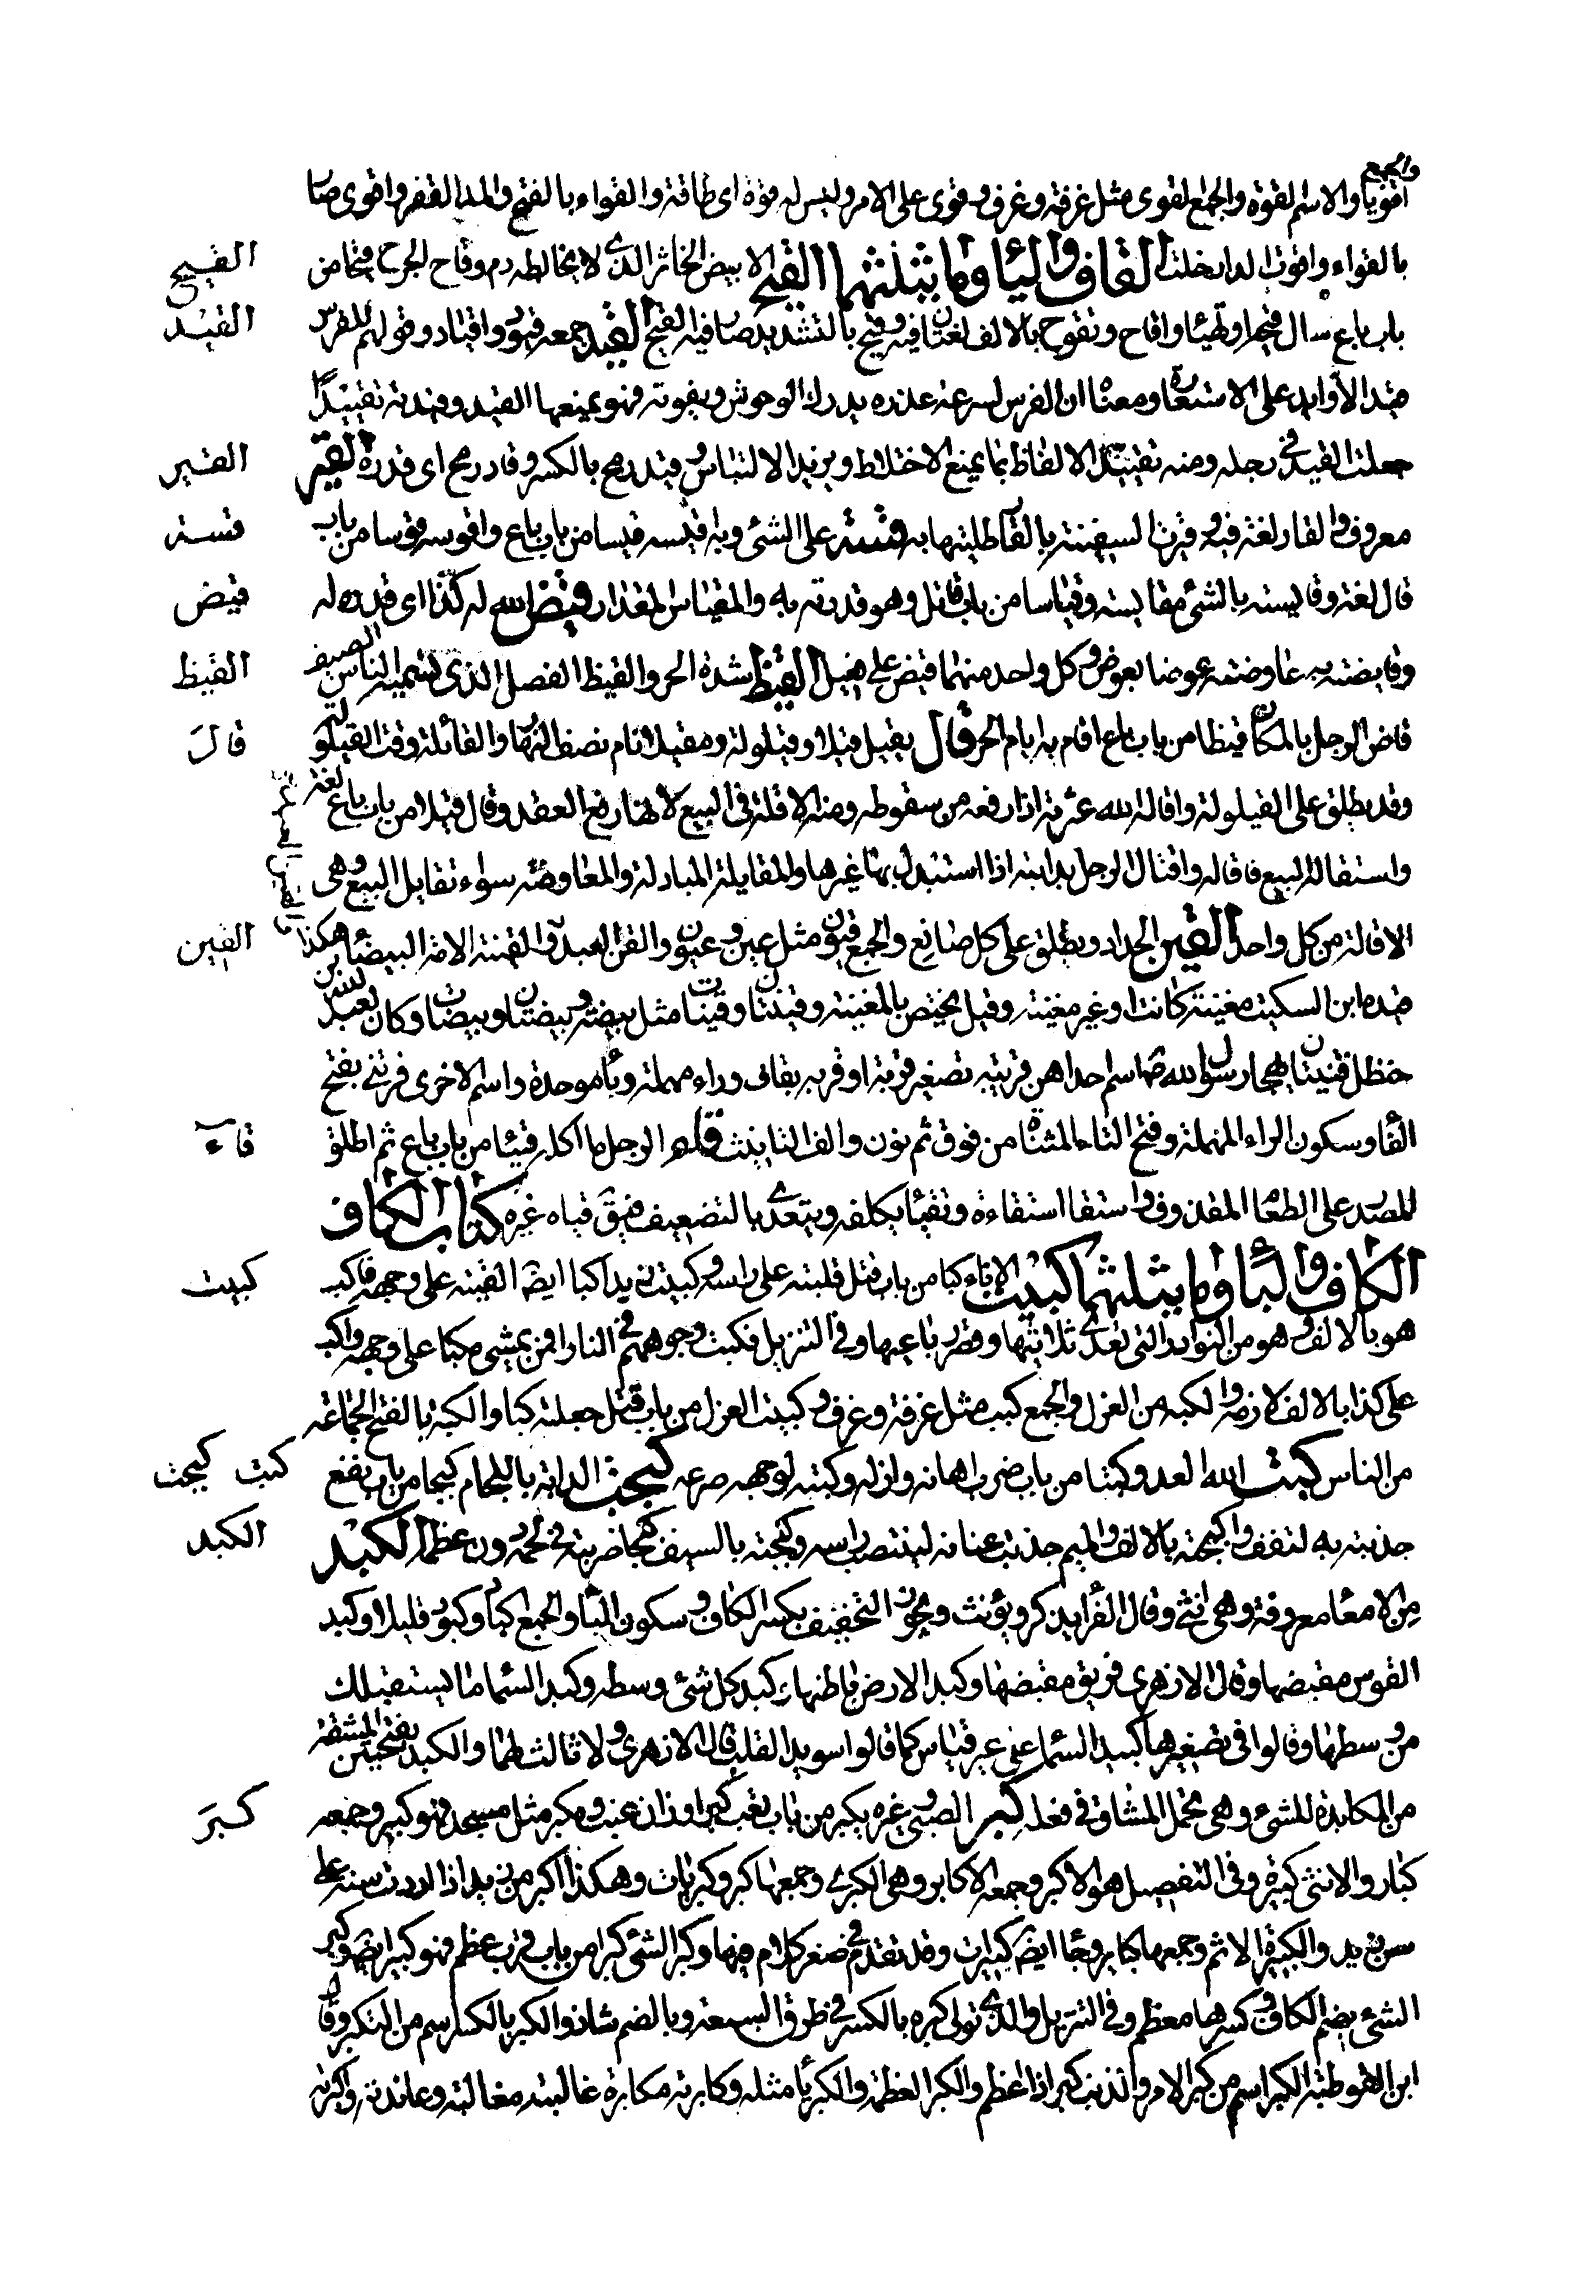 والجمع
اقوياء والاسم القوة والجمع القوى مثل غرفة وغرف وقوى على الامر وليس له قوة اى طاقة والقواء بالفتح والمد القفر واقوى صار
بالقواء واقوت الدار خلت القاف والياء وما يثلثهما القيح الابيض الخاثر الذى لا يخالطه دم وقاح الجرح قيحا من
القيح
باب باع سال قيحه او تهيأ واقاح وتقوح بالالف لغتان فيه وقيح بالتشديد صار فيه القيح القيد جمعه قيود واقياد وقولهم للفرس
القيد
قيد الاوابد على الاستعارة ومعناه ان الفرس لسرعة عدوه يدرك الوحوش ولا يفوته فهو يمنعها القيد وقيدته تقييدا
جعلت القيد في رجله ومنه تقييد الالفاظ بما يمنع الاختلاط ويزيد الالتباس وقيد رمح بالكسر وقاد رمح اى قدره القير
القير
معروف والقار لغة فيه وقيرت السفينة بالقار طليتها به قسته على الشئ وبه اقيسه قيسا من باب باع واقوسه قوسا من باب
قسته
قال لغة وقايسته بالشئ مقايسة وقياسا من باب قاتل وهو قدرته به والمقياس المقدار وقيض الله له كذا اى قدره له
قيض
وقايضته به عاوضته عوضا بعوض وكل واحد منهما قيض على فيعل القيظ شدة الحر والقيظ الفصل الذى تسميه الناس الصيف
القيظ
قاض الرجل بالمكان قيظا من باب باع اقام به ايام الحر قال يقيل قيلا وقيلولة ومقيلا نام نصف النهار والقائلة وقت القيلولة
قال
وقد يطلق على القيلولة واقال الله عثرته اذا رفعه من سقوطه ومنه الاقالة فى البيع لانها رفع العقد وقال قيلا من باب باع لغة
واستقاله البيع فاقاله واقتال الرجل بدابته اذا استبدل بها غيرها والمقايلة المبادلة والمعاوضة سواء تقايل البيع وهى
الاقالة من كل واحد القين الحداد ويطلق على كل صانع والجمع قيون مثل عين وعيون والقن العبد والقينة الامة البيضاء هكذا
القين
قيده ابن السكيت مغنية كانت او غير مغنية وقيل يختص بالمغنية وقينتان وقينات مثل بيضة وبيضتان وبيضات وكان لعبد الله بن
خظل قينتان بهجاء رسول الله ص اسم احداهن قريبه تصغير قربة او قربه بقاف وراء مهملة وباء موحدة واسم الاخرى فرتنى بفتح
القا وسكون الراء المهملة وفتح التاء المثناة من فوق ثم نون والف التانيث قاء الرجل ما اكله قيئا من باب باع ثم اطلق
قاء
المصدر على الطعام المقذوف واستقا استقاءة وتقيأ تكلفه ويتعدى بالتضعيف فيق قياه غيره كتاب الكاف
الكاف والباء وما يثلثهما كببت الاناء كبا من باب قتل قلبته على راسه وكببت زيدا كبا ايضا القيته على وجهه فاكب
كببت
هو بالالف وهو من النوادر التى تعدى ثلاثيها وقصر رباعيها وفى التنزيل فكبت وجوههم فى النار افمن يمشى مكبا على وجهه واكب
على كذا بالالف لازمه والكبة من الغزل والجمع كبب مثل غرفة وغرف وكببت الغزل من باب قتل جعلته كبا والكبة بالفتح الجماعة
من الناس كبت الله العدو كبتا من باب ضرب اهانه واذله وكبته لوجهه صرعه كبحت الدابة باللجام كبحا من باب نفع
كبت كبحت
جذبته به لتقف واكبحته بالالف والميم جذبت عنانه لينتصب راسه وكبحته بالسيف كبحا ضربته فى لحمه دون عظمه الكبد
الكبد
من الامعاء معروفة وهى انثى وقال الفراء يذكر ويؤنث ويجوز التخفيف بكسر الكاف وسكون الباء والجمع اكباد وكبود قليلا وكبد
القوس مقبضها وقال الازهرى فويق مقبضها وكبد الارض باطنها وكبد كل شئ وسطه وكبد السماء ما يستقبلك
من وسطها وقالوا فى تصغيرها كبيد السماء على غير قياس كما قالوا سويد القلب قال الازهرى ولا ثالث لهما والكبد بفتحتين المشقة
من المكابدة للشئ وهى تحمل المشاق فى فعله كبر الصبى وغيره يكبر من باب تعب كبرا وزان عنب ومكبر مثل مسجد فهو كبير وجمعه
كبر
كبار والانثى كبيرة وفى التفضيل هو الاكبر وجمعه الاكابر وهى الكبرى وجمعها كبر وكبريات وهكذا اكبر من زيد اذا زادت سنه على
سن زيد والكبيرة الاثم وجمعها كبائر وجاء ايضا كبيرات وقد تقدم فى صغر كلام فيها وكبر الشئ كبرا من باب قرب عظم فهو كبير ايضا وكبر
الشئ بضم الكاف وكسرها معظمه وفى التنزيل والذى تولى كبره بالكسر فى طرق السبعة وبالضم شاذ والكبر بالكسر اسم من التكبر وقال
ابن القوطية الكبر اسم من كبر الامر والذنب كبر اذا عظم والكبر العظمة والكبرياء مثله وكابرته مكابرة غالبته مغالبة وعاندته واكبرته